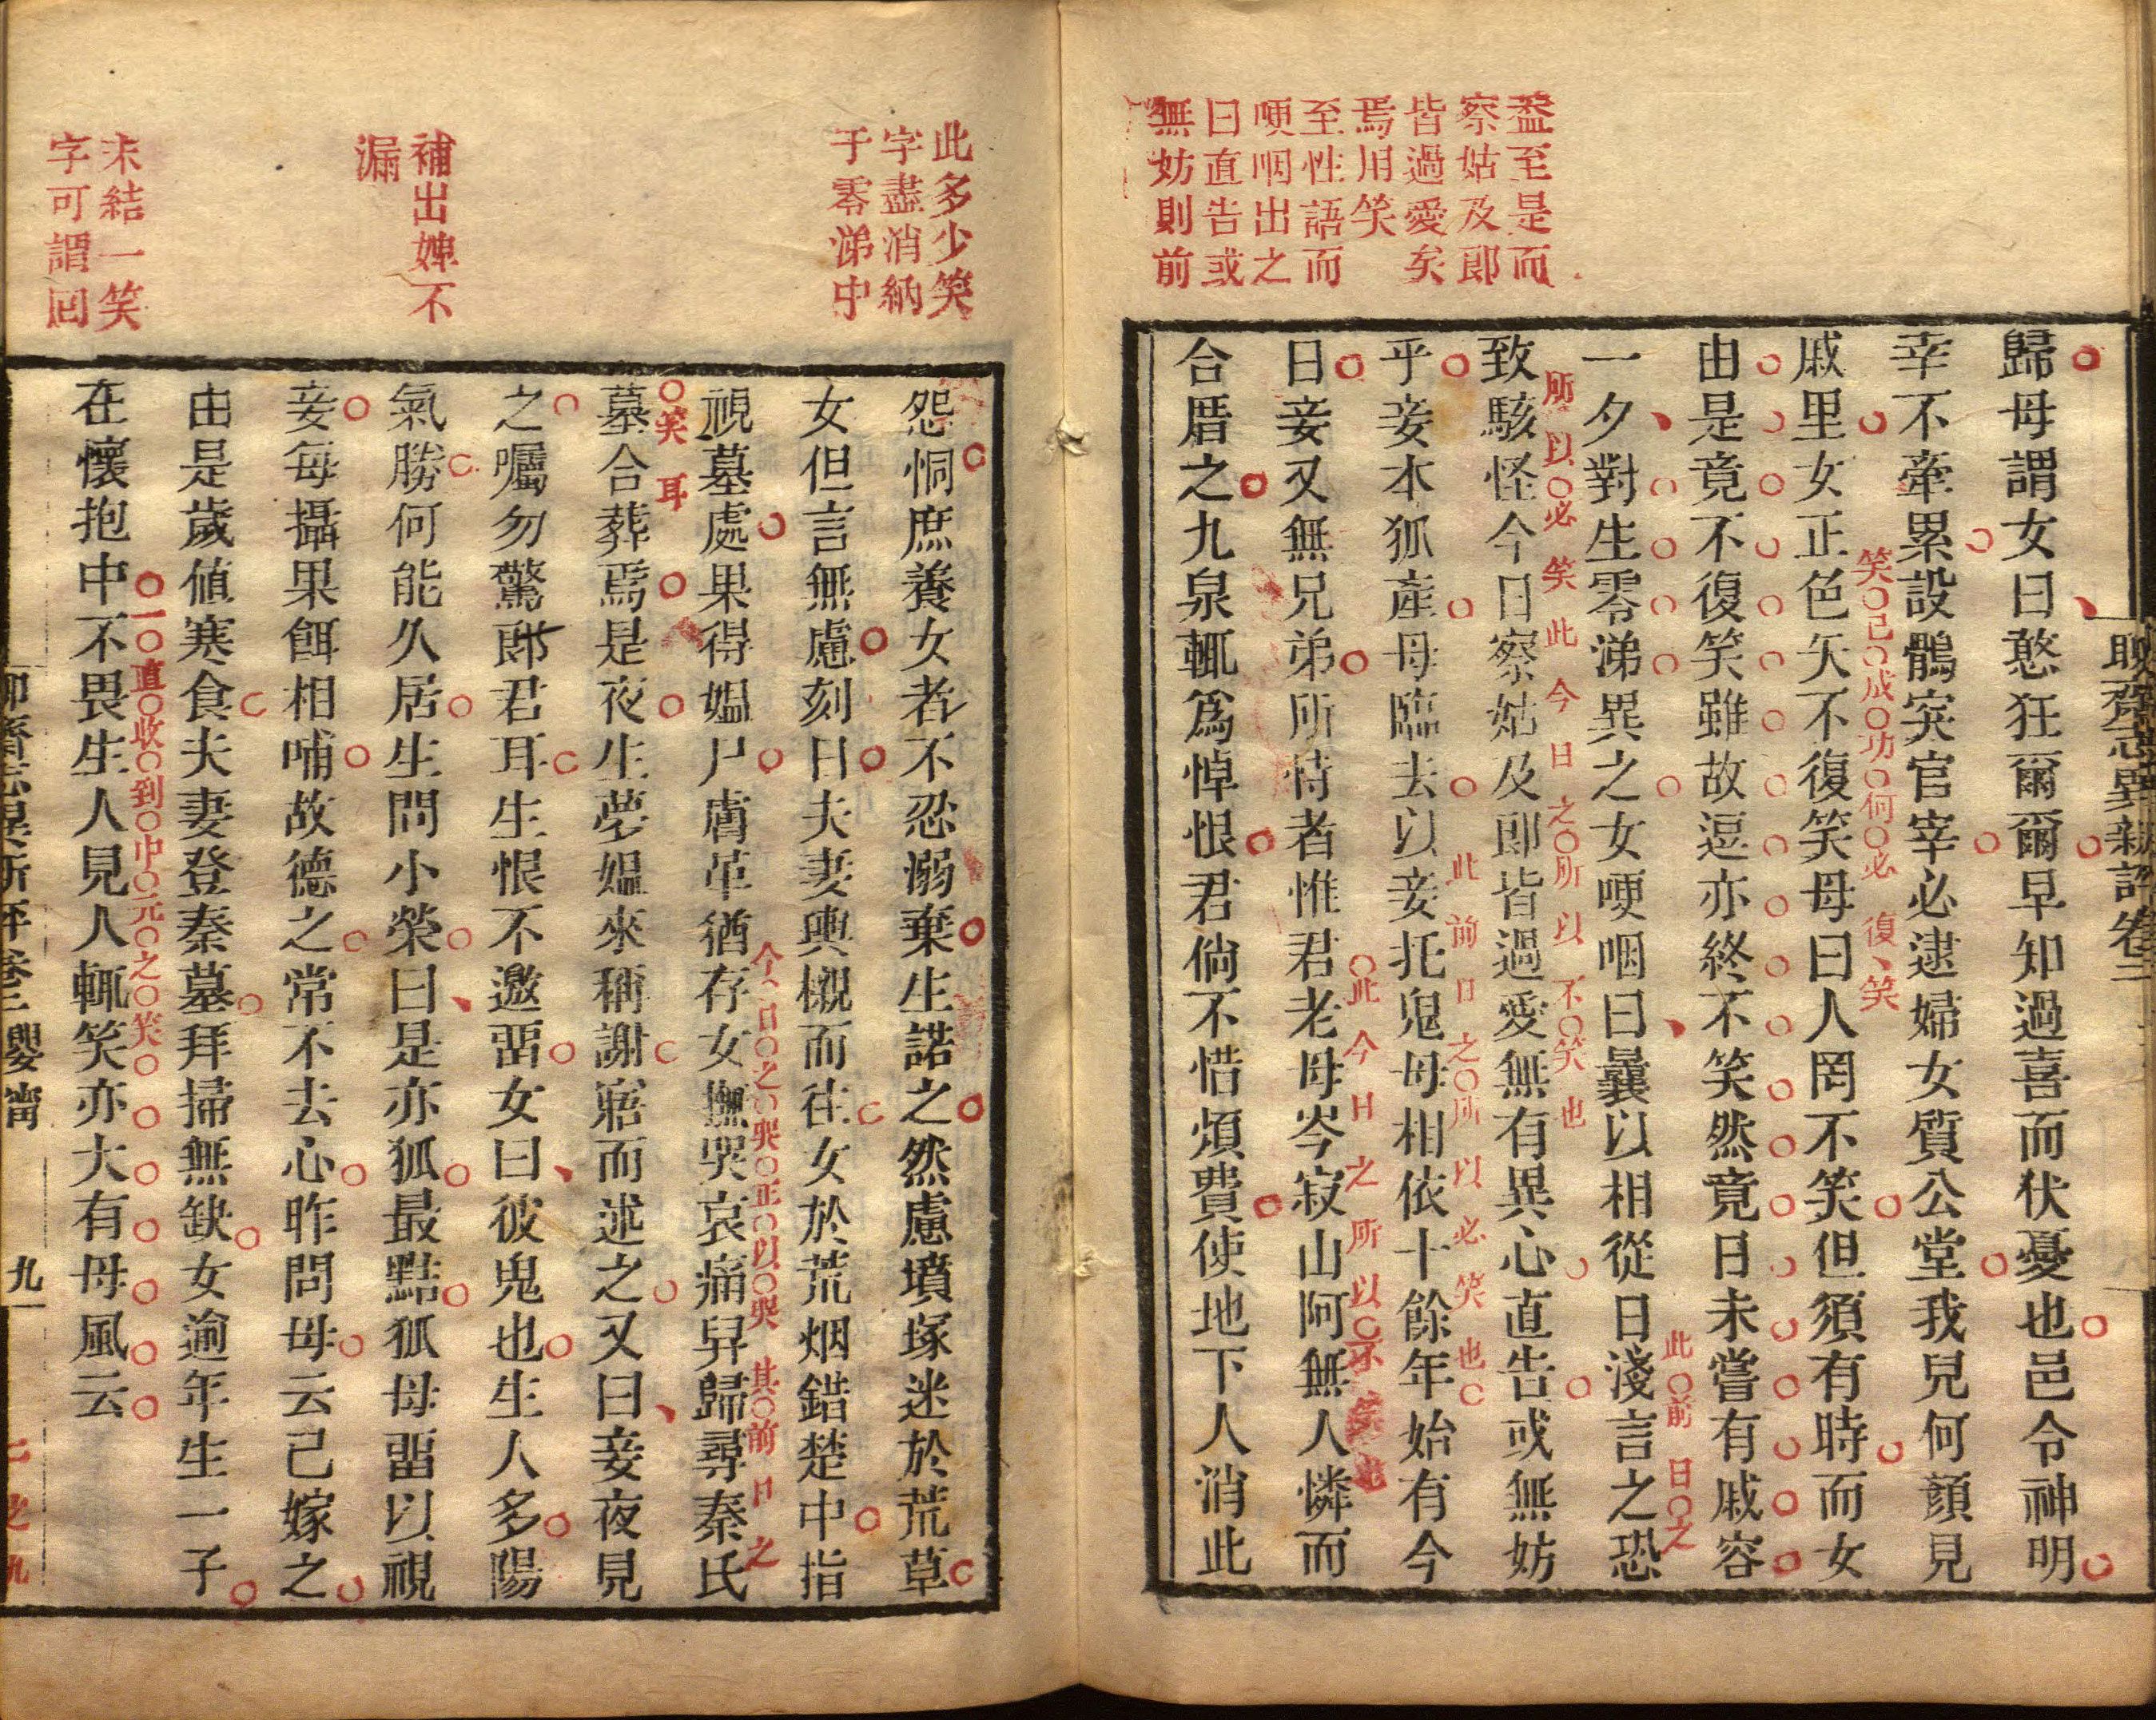 盍至是而
察姑及郎
皆過愛矣
焉用笑
至性語而
哽咽出之
曰直告或
無妨則前
聊齋志異新評卷二
歸母謂女曰憨狂爾爾早知過喜而伏憂也邑令神明
幸不牽累設鶻突官宰必逮婦女質公堂我兒何顏見
笑已成功何必復笑
戚里女正色矢不復笑母曰人罔不笑但須有時而女
由是竟不復笑雖故逗亦終不笑然竟日未嘗有戚容
此前日之
一夕對生零涕異之女哽咽曰曩以相從日淺言之恐
所以必笑此今日之所以不笑也
致駭怪今日察姑及郎皆過愛無有異心直告或無妨
此前日之所以必笑也
乎妾本狐產母臨去以妾托鬼母相依十餘年始有今
此今日之所以示
日妾又無兄弟所恃者惟君老母岑寂山阿無人憐而
合厝之九泉輒爲悼恨君倘不惜煩費使地下人消此
此多少笑
字盡消納
于零涕中
補出婢不
漏
末結一笑
字可謂回
怨恫庶養女者不忍溺棄生諾之然慮墳塚迷於荒草
女但言無慮刻日夫妻輿櫬而往女於荒烟錯楚中指
今日之哭正以哭其前日之
視墓處果得媼尸膚革猶存女撫哭哀痛舁歸尋秦氏
笑耳
墓合葬焉是夜生夢媼來稱謝寤而述之又曰妾夜見
之囑勿驚郎君耳生恨不邀畱女曰彼鬼也生人多陽
氣勝何能久居生問小榮曰是亦狐最黠狐母畱以視
妾每攝果餌相哺故德之常不去心昨問母云己嫁之
由是歲値寒食夫妻登秦墓拜掃無缺女逾年生一子
一直收到中元之笑
在懷抱中不畏生人見人輒笑亦大有母風云
聊齋志異新評卷二 嬰甯 九